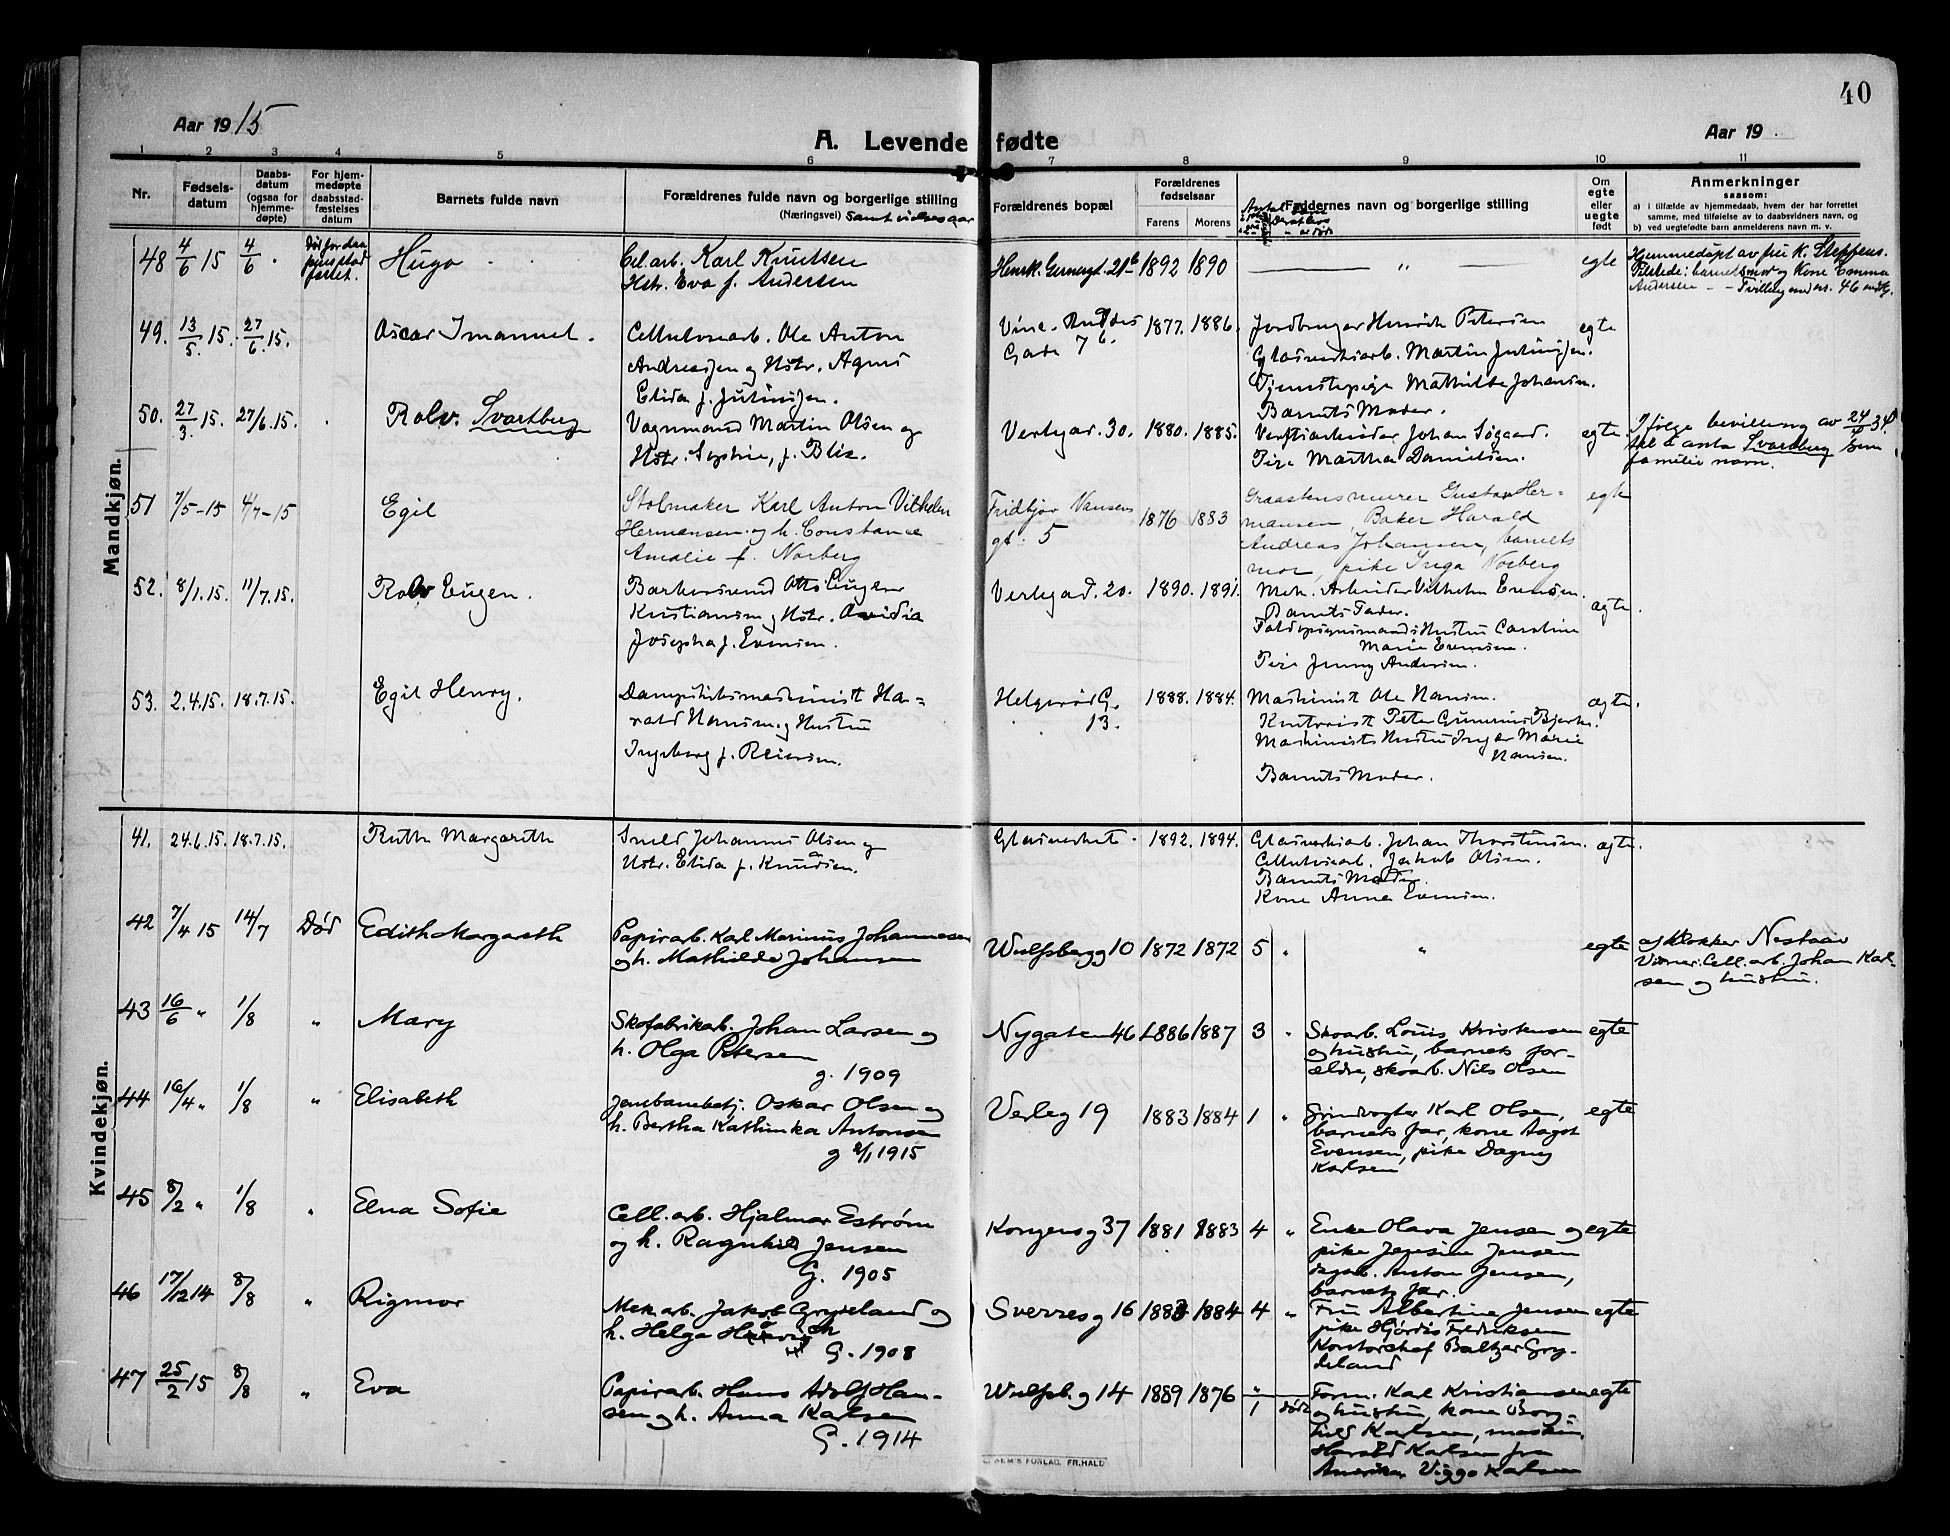 40
Aar 1915
A. Levende fødte
Aar 19
1 2 3 4 5 6 7 8 9 10 11
Nr.
Fødsels-
datum
Daabs-
datum
(ogsaa for
hjemme-
døpte)
For hjem-
medøpte
daabsstad-
fæstelses
datum
Barnets fulde navn
Forældrenes fulde navn og borgerlige stilling
(Næringsvei) samt vielsesaar
Forældrenes bopæl
Forældrenes
fødselsaar
Farens
Morens
Faddernes navn og borgerlige stilling
Om
egte
eller
uegte
født
Anmerkninger
saasom:
a) i tilfælde av hjemmedaab, hvem der har forrettet
samme, med tilføielse av to daabsvidners navn, og
b) ved uegtefødte barn anmelderens navn m. v.
Mandkjøn.
48 4/6 15 4/6 Død før daa
Hugo
Cel. arb. Karl Knutsen
Hstr. Eva f. Andersen
Henrk. Gernesgt. 21b 1892 1890
— " —
egte
Hjemmedøpt av fru K. Steffens.
Tilstede: barnets mor og Kone Emma
Andersen - - Tvilling med nr. 46
49. 13/5. 15. 27/6. 15.
Oscar Imanuel.
Cellulosearb. Ole Anton
Andreassen og Hstr. Agnes
Elida f. Juliussen.
Gade 7b. 1877. 1886.
Jordbruger Henrik Petersen
Glasverksarb. Martin Juliussen.
Tjenestepige Mathilde Johansen.
Barnets Moder.
egte
50. 27/3. 15. 27/6. 15.
Rolv. Svartberg
Vognmand Martin Olsen og
Hstr. Sophie, f. Blix.
Verlegar. 30. 1880. 1885.
Verftsarbeider Johan Søgaard.
Pige Martha Danielsen.
egte.
Ifølge bevilling av 24/4 34
til å anta Svartberg som
familie navn.
51 7/5-15 4/7-15
Egil
Stolmaker Karl Anton Vilhelm
Hermansen og h. Constance
Amalie f. Norberg
Fridtjov Nansens
gt. 5 1876 1883
Graastensmurer Gustav Her=
mansen, Baker Harald
Andreas Johansen, barnets
mor, pike Inga Norberg
egte
52. 8/1. 15. 11/7. 15.
Rolv Eugen.
Barbersvend Otto Eugen
Kristiansen og Hstr. Ovidia
Josepha f. Evensen.
Verlegad. 20. 1890. 1891.
Mek. Arbeider Vilhelm Evensen.
Barnets Fader.
Caroline
Marie Evensen.
Pige Jenny Andersen.
ægte.
53. 2.4.15. 18.7.15.
Egil Henry.
Dampskibsmaskinist Ha=
rald Hansen og Hustru
Ingeborg f. Reiersen.
Helgerød G.
13. 1888. 1884.
Maskinist Ole Hansen.
Kontorist Peter Gunerius Bjerke.
Maskinists Hustru Inger Marie
Hansen.
Barnets Moder.
ægte.
Kvindekjøn.
41. 24.6.15. 18.7.15.
Ruth Margarith
Smed Johannes Olsen og
Hstr. Elida f. Knudsen.
Glasverket. 1892. 1894.
Glasverksarb. Johan Thorstensen.
Cellulosearb. Jakob Olsen.
Barnets Moder.
Kone Anna Evensen.
ægte.
42 7/4 15 14/7 Død
Edith Margareth
Papirarb. Karl Marinus Johannesen
og h. Mathilde Johansen
Wulfsbergg 10 1872 1872 5 "
"
egte
af Klokker Nestaas
Vidner: Cell. arb. Johan Karl-
sen og hustru.
43 16/6 " 1/8 "
Mary
Skofabrikarb. Johan Larsen og
h. Olga Petersen
g. 1909
Nygaten 46 1886 1887 3 "
Skoarb. Louis Kristensen
og hustru, barnets for-
ældre, skoarb. Nils Olsen
egte
44 16/4 " 1/8 "
Elisabeth
Jernbanebetj. Oskar Olsen og
h. Bertha Kathinka Antonsen
g 2/1 1915
Verleg 19 1883 1884 1 "
Grindvogter Karl Olsen,
barnets far, kone Aagot
Evensen, pike Dagny
Karlsen
egte
45 8/2 " 1/8 "
Elna Sofie
Cell. arb. Hjalmar Estrøm
og h. Ragnhild Jensen
G. 1905
Kongensg 37 1881 1883 4 "
Enke Olava Jensen og
pike Jensine Jensen
dagarb. Anton Jensen,
barnets far.
egte
46 17/12 14 8/8 "
Rigmor
Mek. arb. Jakob Grydeland og
h. Helga
G. 1908
Sverresg 16 1883 1884 4 "
Fru Albertine Jensen
pike Hjørdis Fredriksen
Kontorchef Baltzer Gry-
deland
egte
47 25/2 15 8/8 "
Eva
Papirarb. Hans Adolf Han-
sen og h. Anna Karlsen
G. 1914
Wulfsb. g 14 1889 1876 "
1 døde
Form. Karl Kristiansen
og hustru, kone Borg-
hild Karlsen, maskin.
Harald Karlsen fra
Amerika, Viggo Karlsen
egte
SEM'S FORLAG. FR.HALD